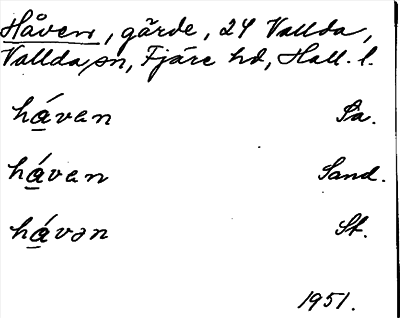 Håven, gärde, 24 Vallda,
Vallda sn, Fjäre hd, Hall. l.
hávan Pa.
hávan Sand.
hávən St.
1951.